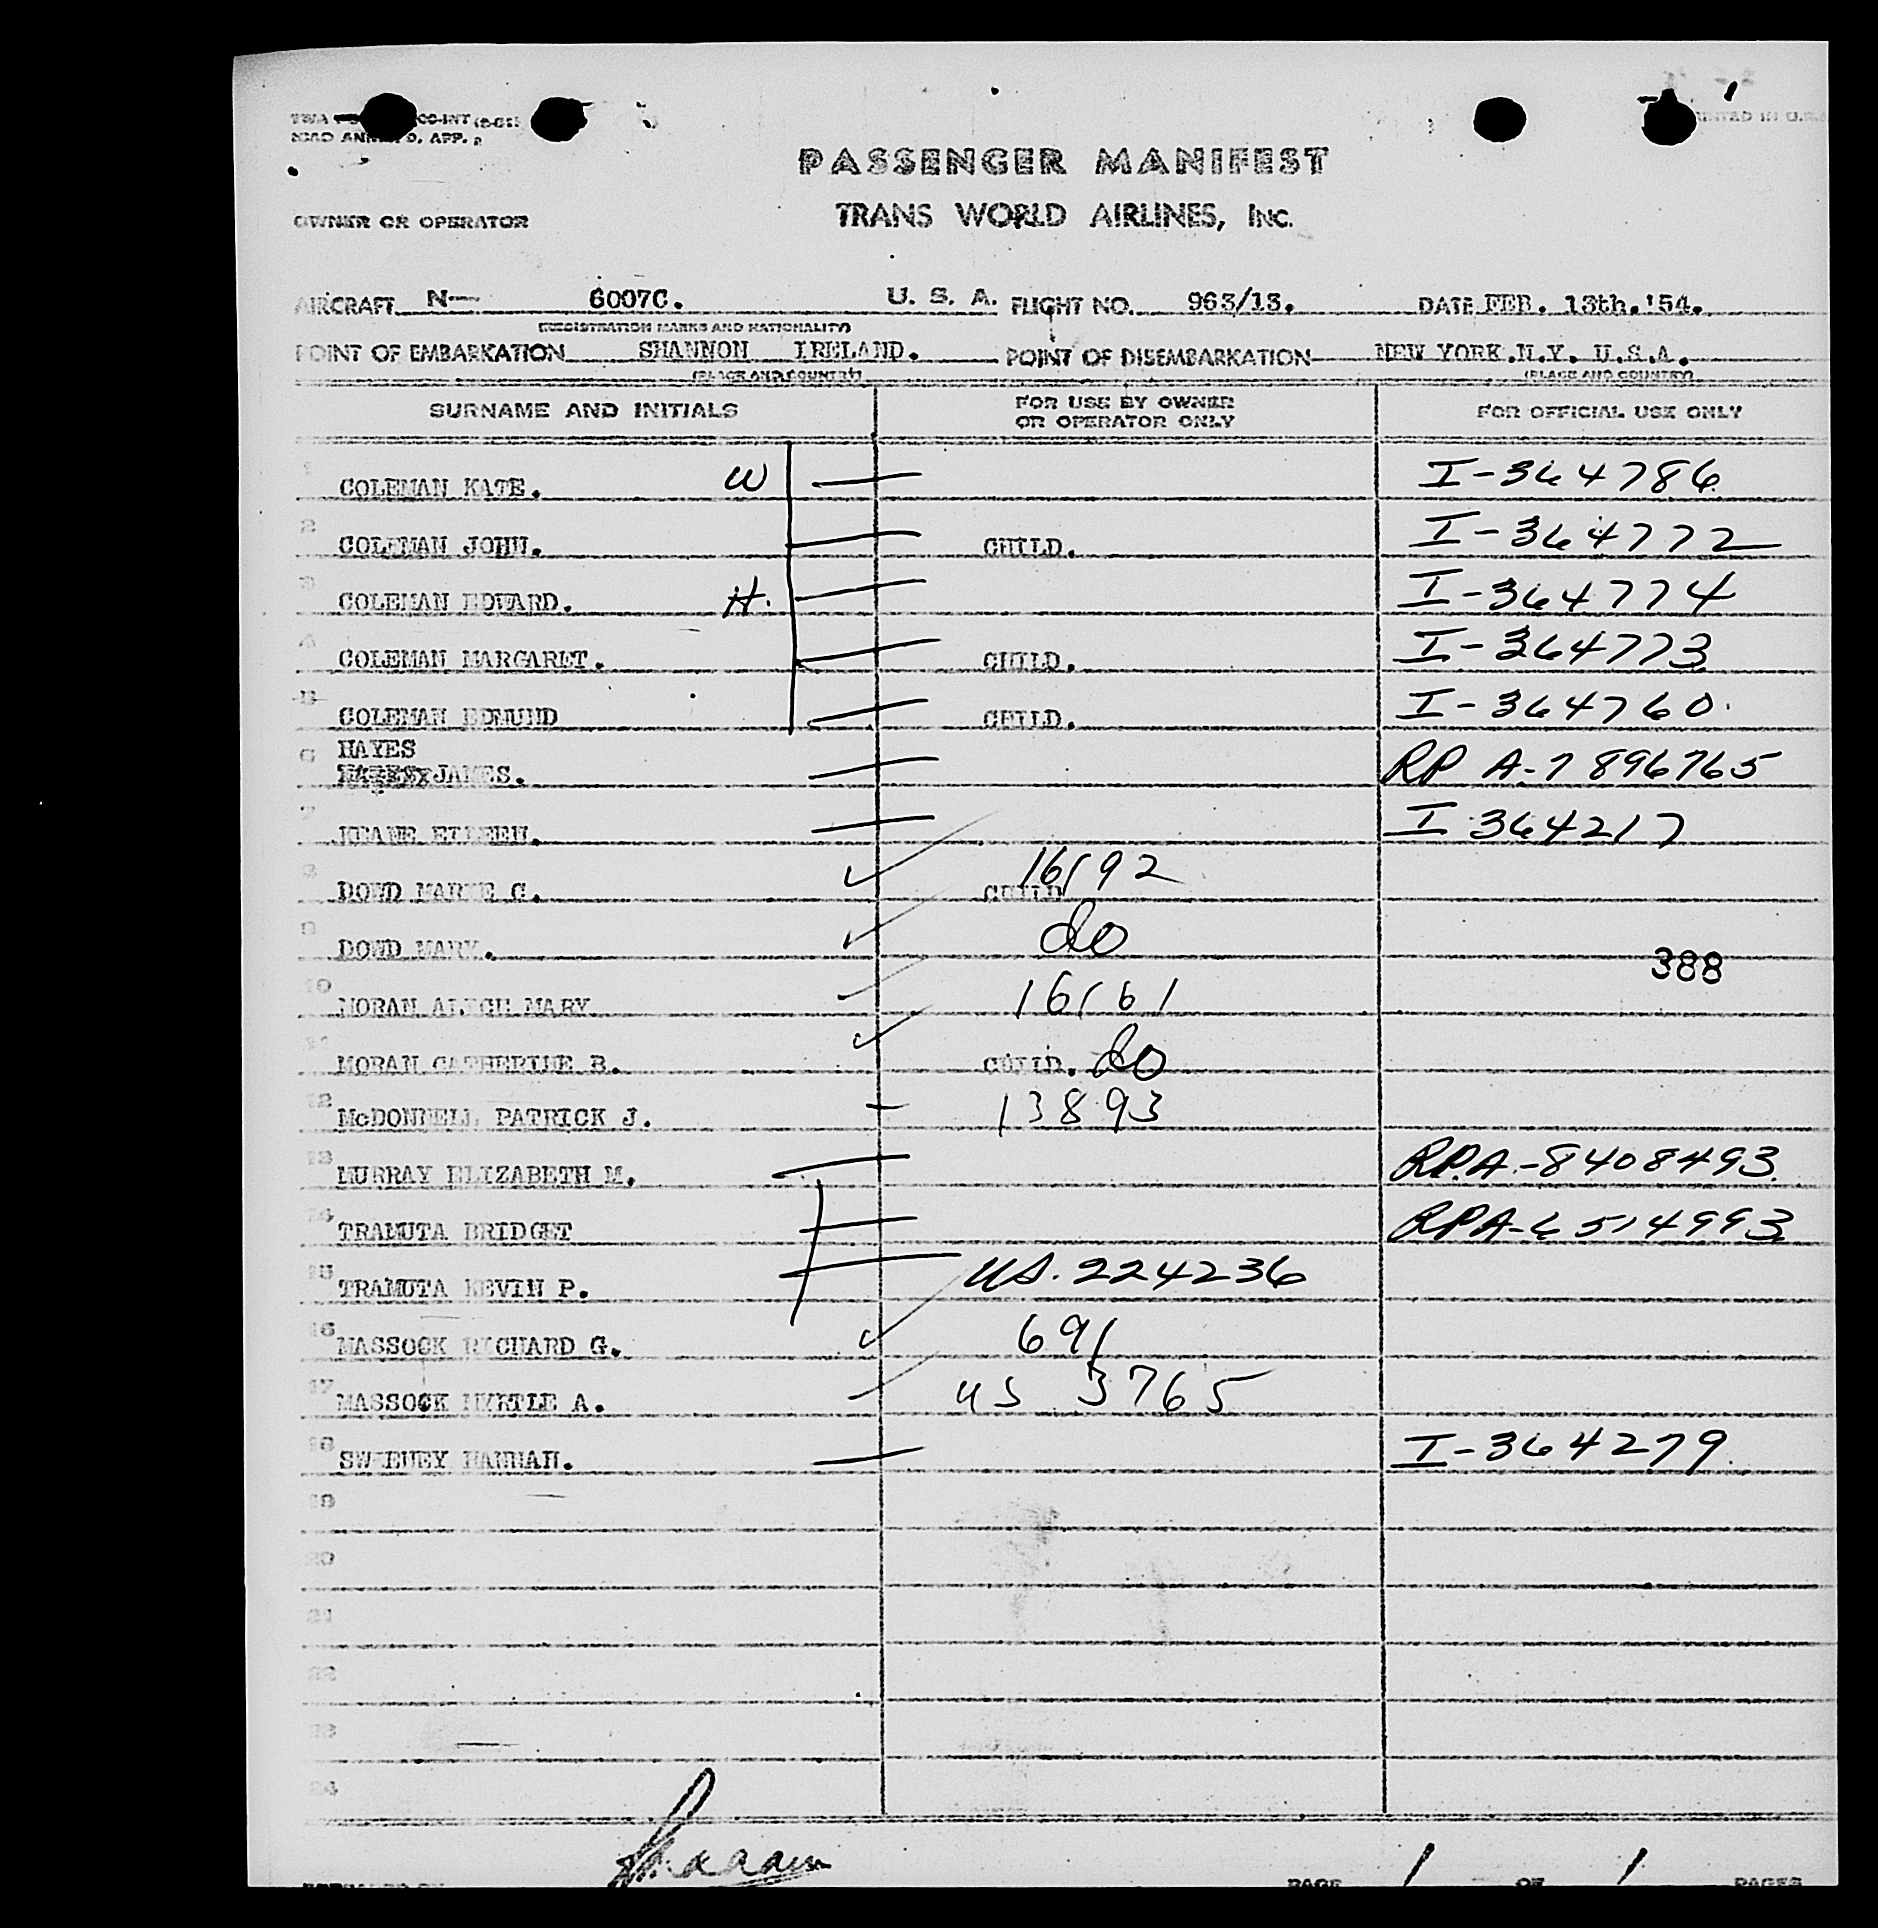 PASSENGER MANIFEST
TRANS WORLD AIRLINES, INC.
OWNER OR OPERATOR
AIRCRAFT N— 6007C. U. S. A. FLIGHT NO. 963/13. DATE FEB. 13th.'54.
(REGISTRATION MARKS AND NATIONALITY)
POINT OF EMBARKATION SHANNON IRELAND. POINT OF DISEMBARKATION NEW YORK.N.Y. U.S.A.
(PLACE AND COUNTRY) (PLACE AND COUNTRY)
SURNAME AND INITIALS FOR USE BY OWNER OR OPERATOR ONLY FOR OFFICIAL USE ONLY
1 COLEMAN KATE. W I-364786
2 COLEMAN JOHN. CHILD. I-364772
3 COLEMAN EDWARD. H. I-364774
4 COLEMAN MARGARET. CHILD. I-364773
5 COLEMAN EDMUND CHILD. I-364760.
HAYES
6 JAMES. RP A-7896765
7 KEANE EILEEN. I-364217
8 DOWD MARIE C. CHILD 16192
9 DOWD MARY. do
388
10 MORAN MARY 16161
11 MORAN CATHERINE B. CHILD. do
12 McDONNELL PATRICK J. 13893
13 MURRAY ELIZABETH M. RP.A.-8408493.
14 TRAMUTA BRIDGET RPA-6514993
15 TRAMUTA KEVIN P. US. 224236
16 MASSOCK RICHARD G. 691
17 MASSOCK MYRTLE A. US 3765
18 SWEENEY HANNAH. I-364279.
19
20
21
22
23
24
PAGE 1 OF 1 PAGES